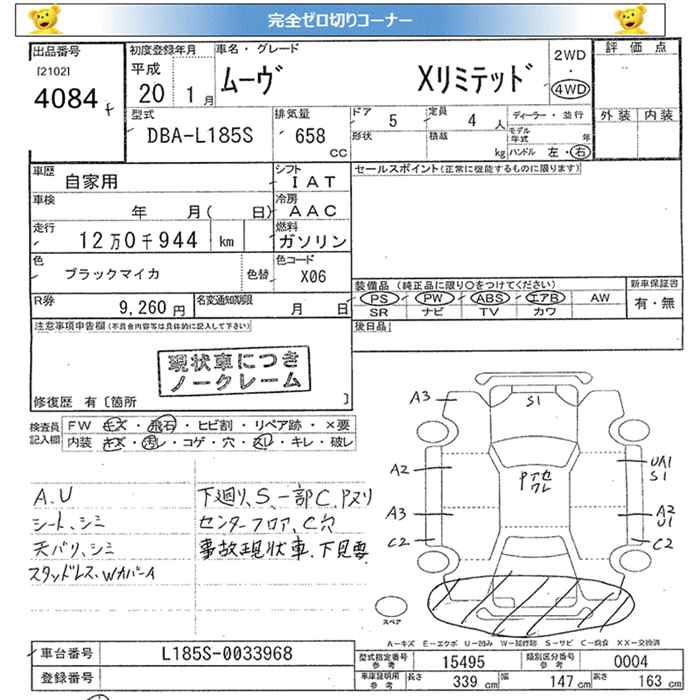 完全ゼロ切りコーナー
出品番号
[2102]
4084
初度登録年月
平成
20 1月
車名・グレード
ムーヴ Xリミテッド
2WD
・
4WD
評価点
外装 内装
型式
DBA-L185S
排気量
658
CC
ドア
5
定員
4人
形状
積載
kg
ディーラー・並行
モデル年式 年
ハンドル 左・右
車歴
自家用
シフト
IAT
車検
年 月( 日)
冷房
AAC
走行
12万0千944 km
燃料
ガソリン
色
ブラックマイカ
色替
色コード
X06
R券
9,260円
名変通知期限
月 日
セールスポイント(正常に機能するものに限ります)
装備品 (純正品に限り○をつけてください)
PS PW ABS エアB AW
SR ナビ TV カワ
新車保証書
有・無
後日品
注意事項申告欄(不具合内容等は具体的に記入して下さい)
現状車につき
ノークレーム
修復歴 有 [箇所 ]
検査員
記入欄
FW キズ・飛石・ヒビ割・リペア跡・×要
内装 キズ・汚レ・コゲ・穴・スレ・キレ・破レ
A.U
シート、シミ
天バリ、シミ
スタッドレス、Wカバー
下廻り、S、一部C、Pヌリ
センターフロア、C穴
事故現状車、下見要
A3
S1
A2
UA1
S1
Pアセ
ワレ
A3
A2
U1
C2
C2
スペア
A－キズ E－エクボ U－凹み W－補修跡 S－サビ C－腐食 XX－交換済
車台番号
L185S-0033968
登録番号
型式指定番号
参考
15495
類別区分番号
参考
0004
車庫証明用
参考
長さ 339 cm
幅 147 cm
高さ 163 cm